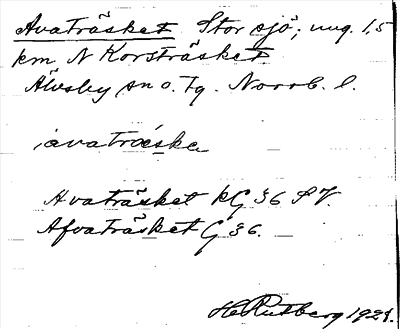 Avaträsket Stor sjö; ung. 1,5
km N Korsträsket
Älvsby sn o. tg. Norrb. l.
avatroeske
Avaträsket kG 36 SV.
Afvaträsket G 36.
H. Rutberg 1921.